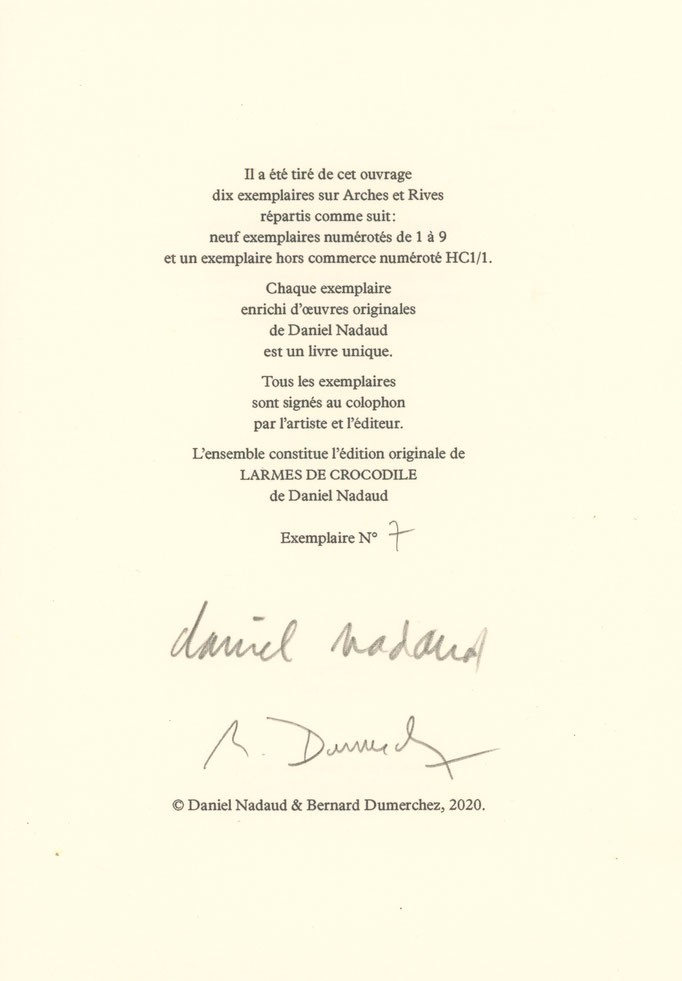 Il a été tiré de cet ouvrage
dix exemplaires sur Arches et Rives
répartis comme suit :
neuf exemplaires numérotés de 1 à 9
et un exemplaire hors commerce numéroté HC1/1.
Chaque exemplaire
enrichi d’œuvres originales
de Daniel Nadaud
est un livre unique.
Tous les exemplaires
sont signés au colophon
par l’artiste et l’éditeur.
L’ensemble constitue l’édition originale de
LARMES DE CROCODILE
de Daniel Nadaud
Exemplaire N° 7
daniel nadaud
B. Dumerch
© Daniel Nadaud & Bernard Dumerchez, 2020.